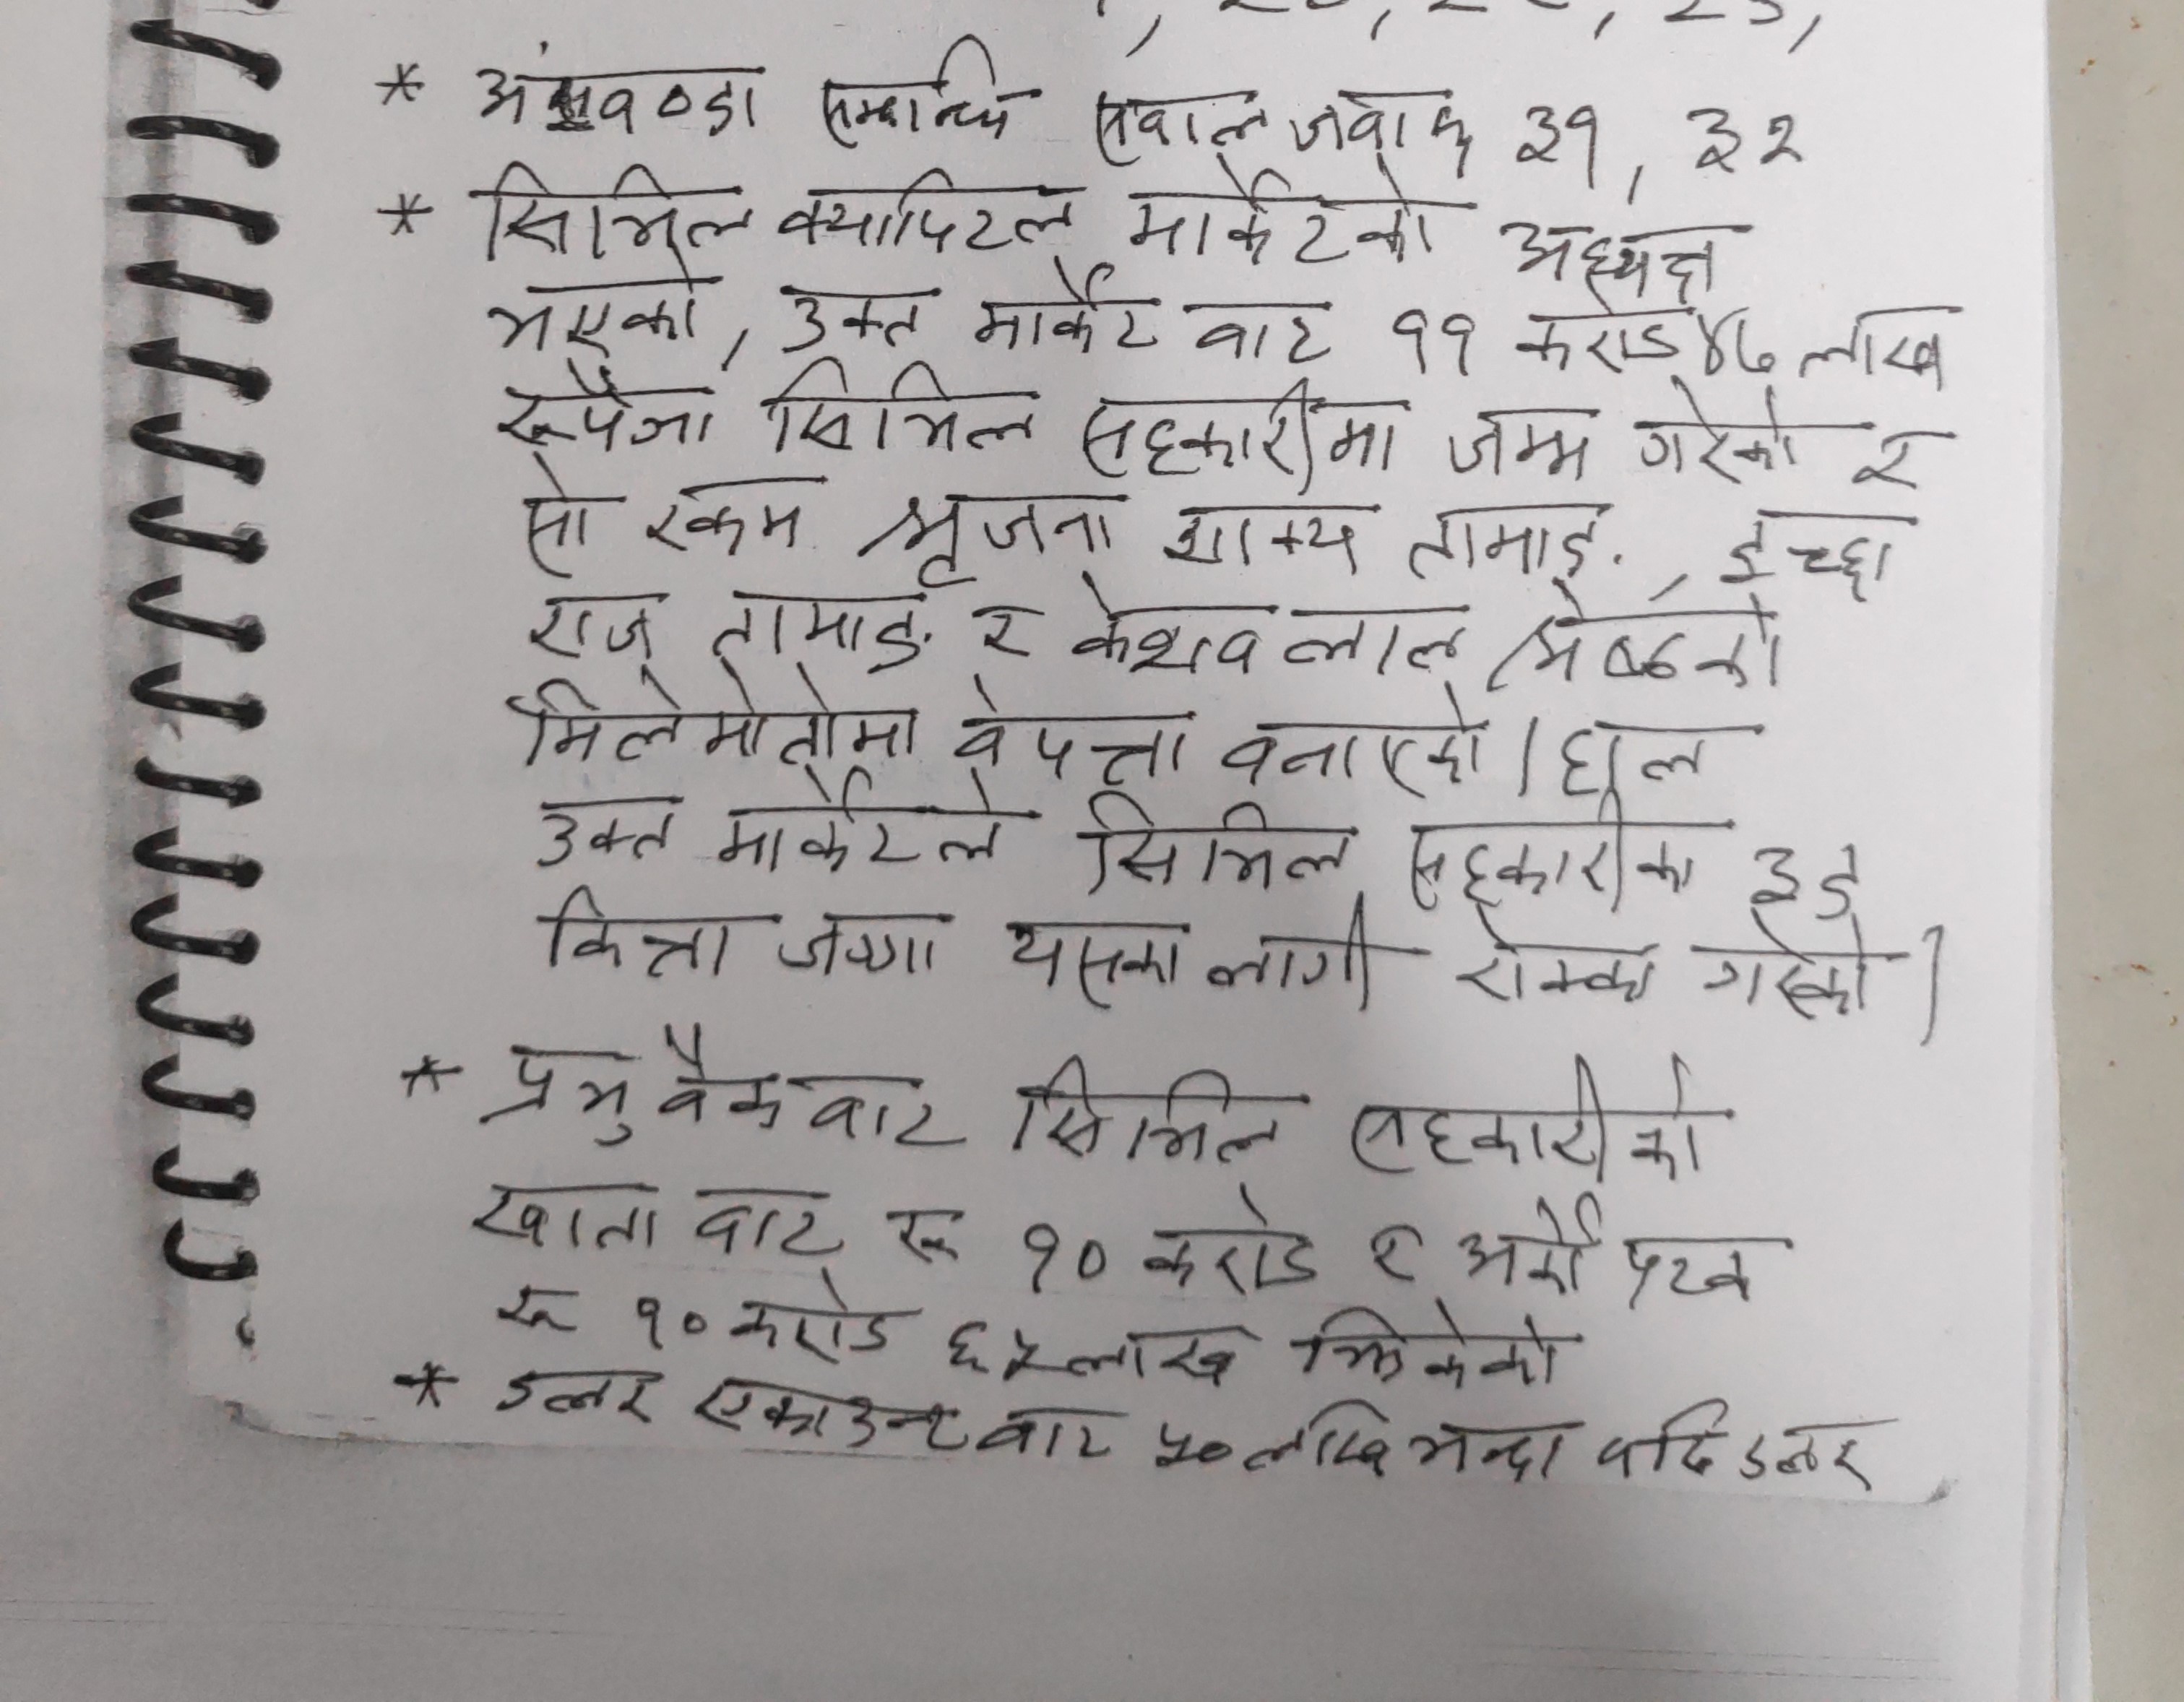 * अंसवण्डा सम्बन्धि सवाल जवाफ ३१, ३२
* सिभिल क्यापिटल मार्केटको अध्यक्ष
भएको, उक्त मार्केट बाट ११ करोड ४७ लाख
रूपैञा सिभिल सहकारीमा जम्मा गरेको र
सो रकम श्रृजना शाक्य तामाङ, इच्छा
राज तामाङ र केशव लाल श्रेष्ठको
मिलेमोतोमा वेपत्ता वनाएको। हाल
उक्त मार्केटले सिभिल सहकारीका ३८
कित्ता जग्गा यसका लागी रोक्का गरेको।
* प्रभु वैंकवाट सिभिल सहकारीको
खाता वाट रू १० करोड र अर्को पटक
रू १० करोड ६५ लाख झिकेको
* डलर एकाउन्टवाट ५० लाख भन्दा वढि डलर